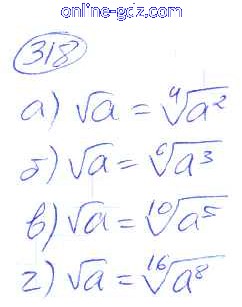 online-gdz.com
318
а) √a = ⁴√a²
б) √a = ⁶√a³
в) √a = ¹⁰√a⁵
г) √a = ¹⁶√a⁸